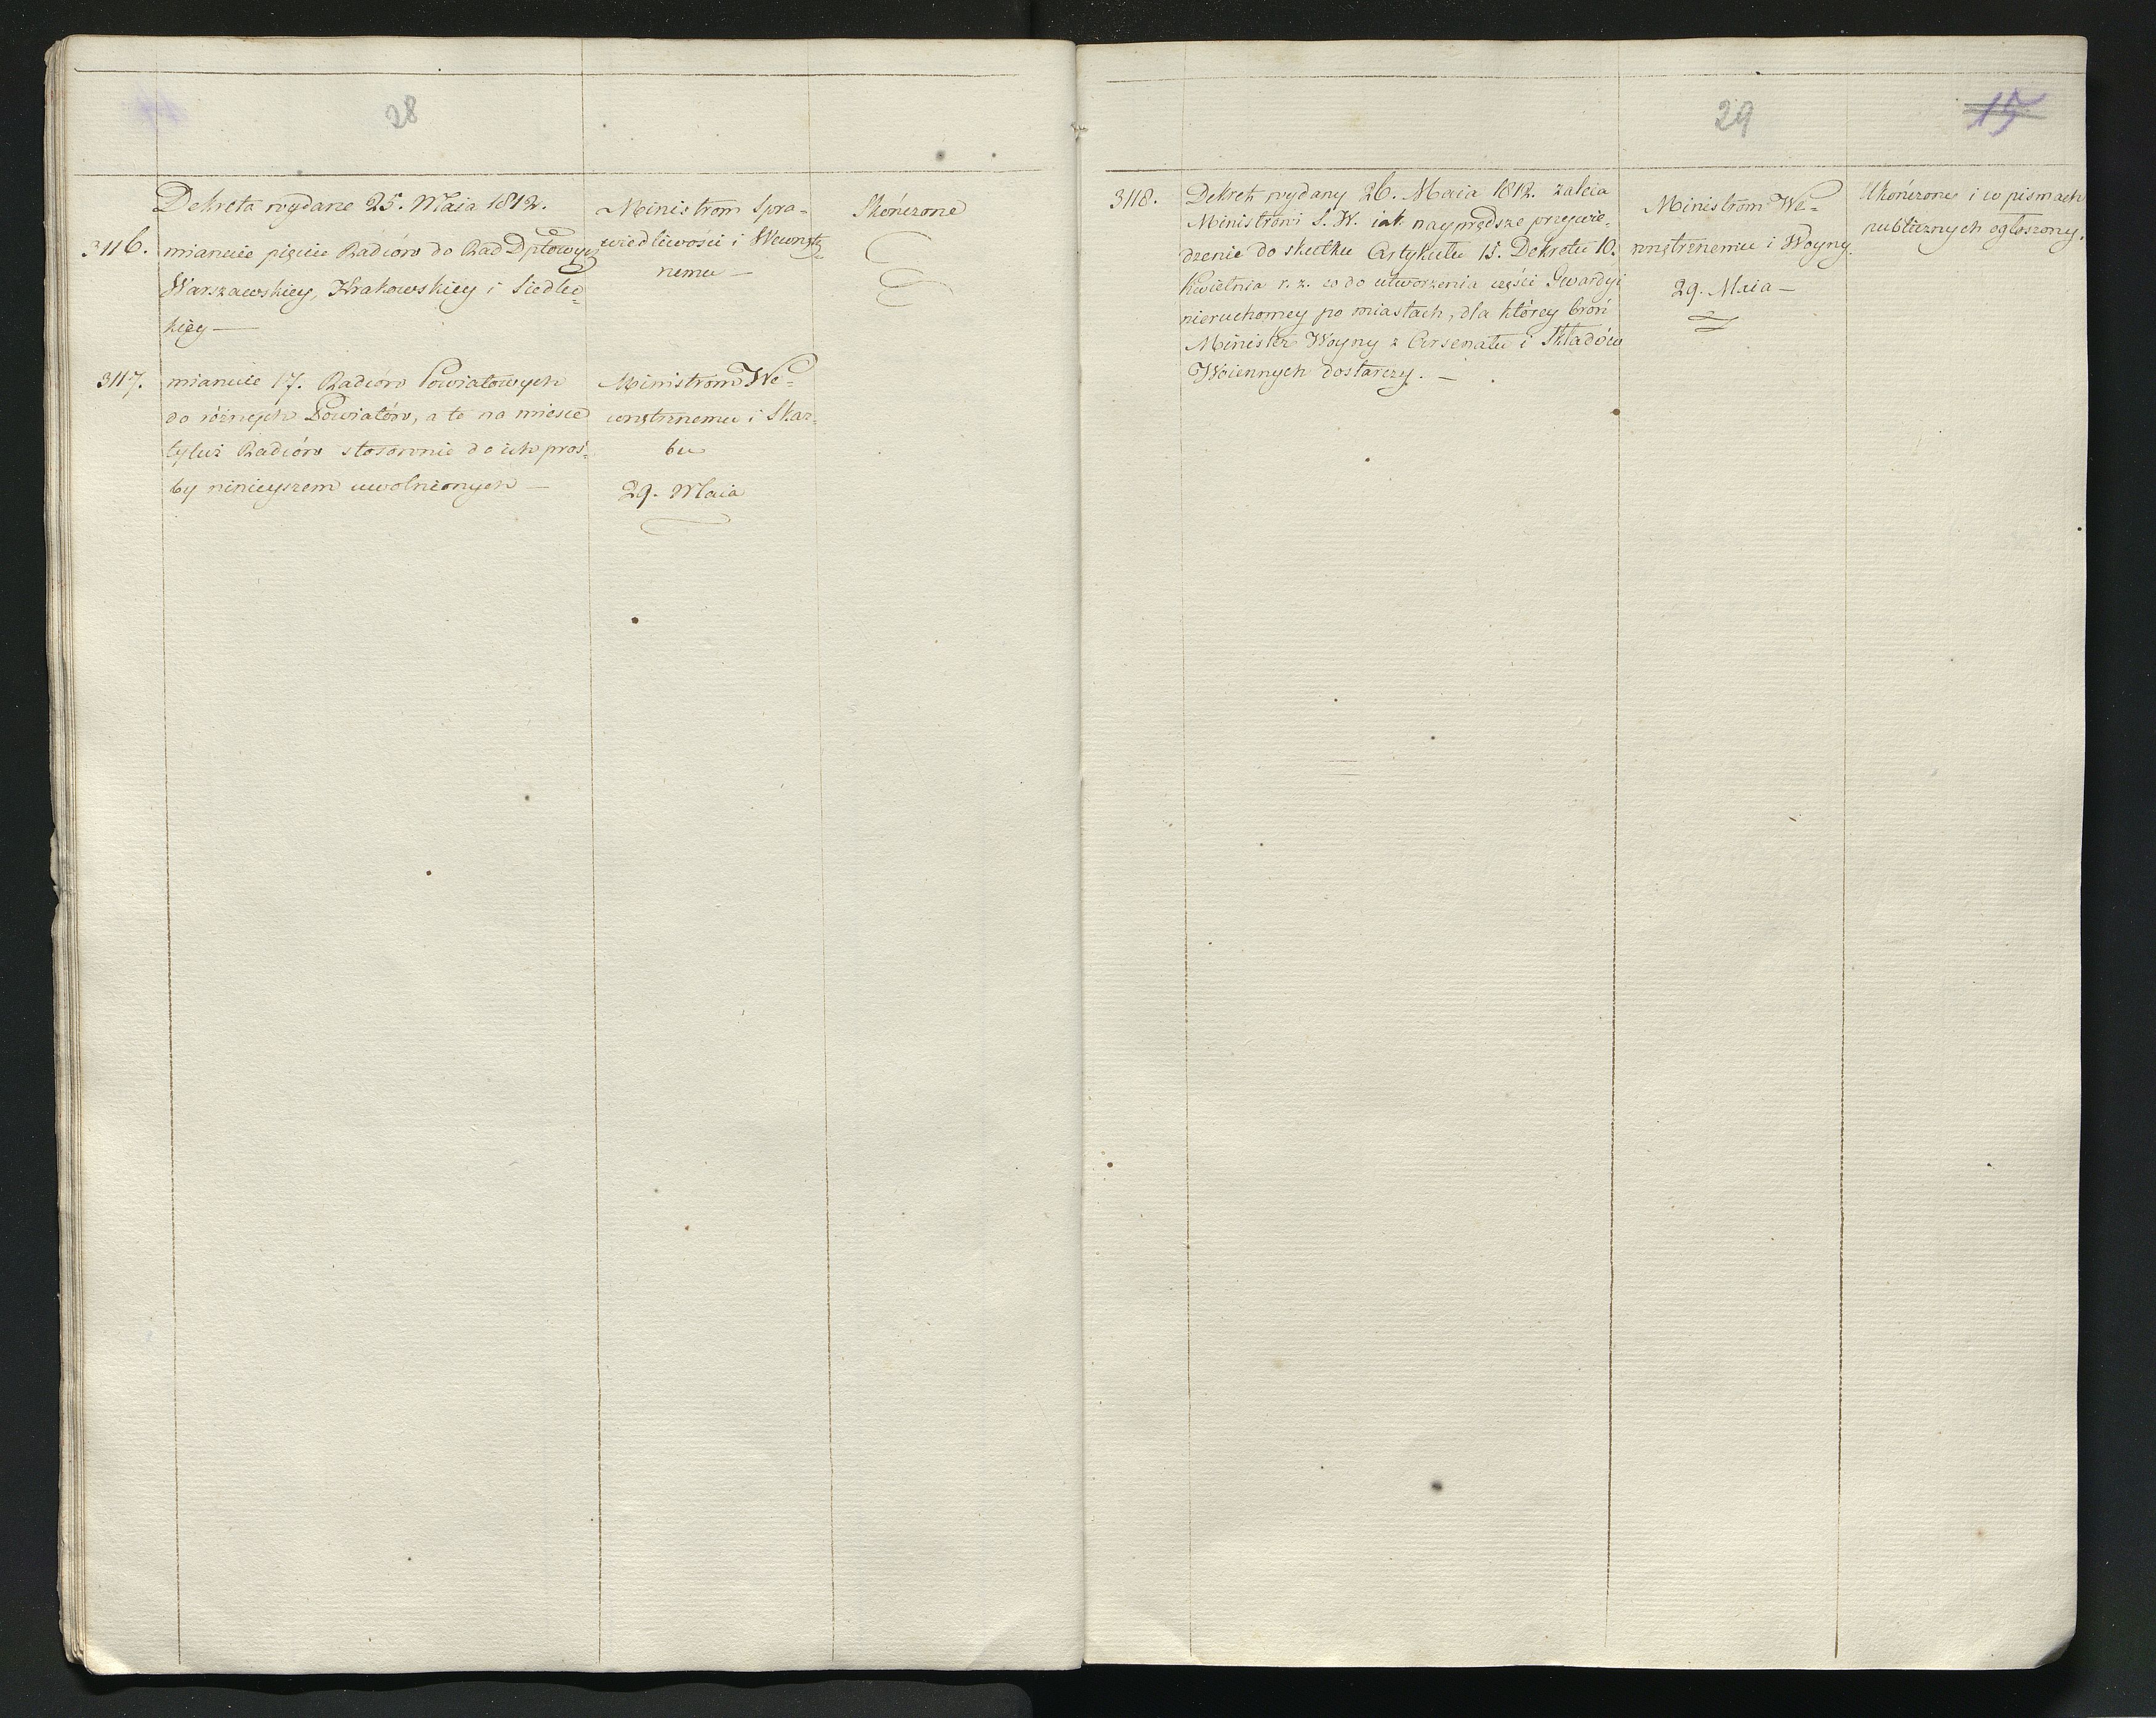 28
Dekreta wydane 25. Maia 1812.
3116.
mianuie pięciu Radców do Rad Dptowych
Warszawskiey, Krakowskiey i Siedlec=
kiey —
Ministrom Spra=
wiedliwości i Wewnętrz=
nemu —
Skończone
3117.
mianuie 17. Radców Powiatowych
do różnych Powiatów, a to na miesce
tyluż Radców stosownie do ich proś=
by ninieyszem uwolnionych —
Ministrom We=
wnętrznemu i Skar=
bu
29. Maia
29
15
3118.
Dekret wydany 26. Maia 1812. zaleca
Ministrowi S. W. iak nayprędsze przywie=
dzenie do skutku Artykułu 15. Dekretu 10.
Kwietnia r. z. co do utworzenia części Gwardyi
nieruchomey po miastach, dla którey broń
Minister Woyny z Arsenału i Składów
Woiennych dostarczy. —
Ministrom We=
wnętrznemu i Woyny.
29. Maia —
Ukończone i w pismach
publicznych ogłoszony.